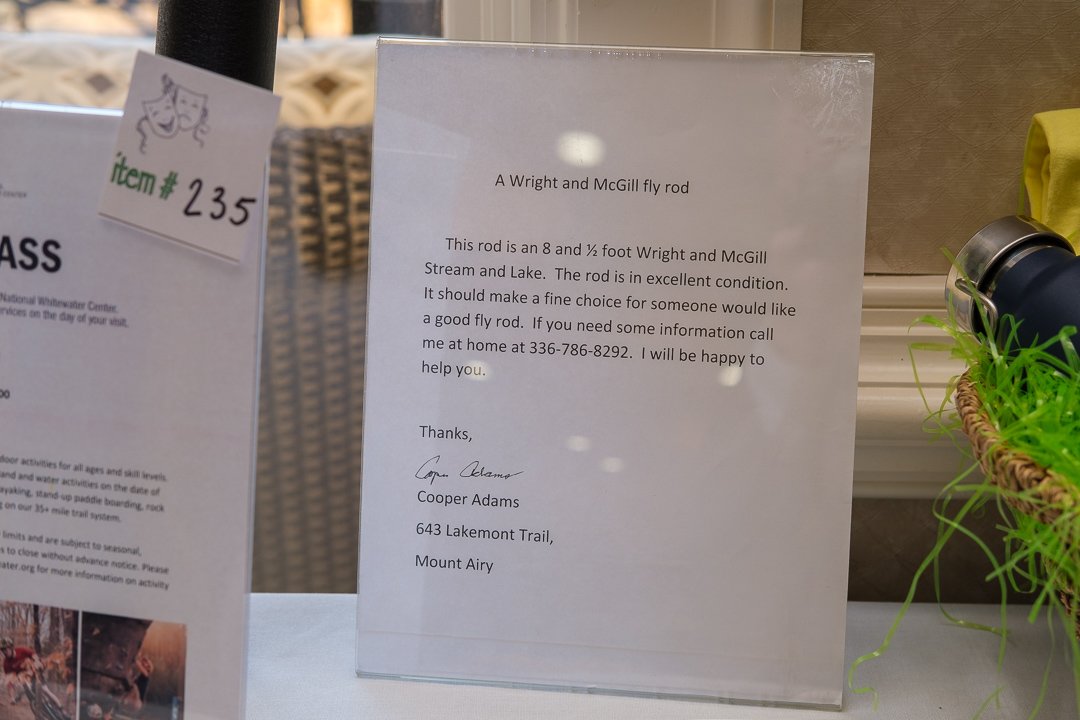 item # 235
CENTER
ASS
National Whitewater Center.
ervices on the day of your visit,
00
door activities for all ages and skill levels.
and and water activities on the date of
ayaking, stand-up paddle boarding, rock
g on our 35+ mile trail system.
limits and are subject to seasonal,
s to close without advance notice. Please
ater.org for more information on activity
A Wright and McGill fly rod
This rod is an 8 and ½ foot Wright and McGill
Stream and Lake. The rod is in excellent condition.
It should make a fine choice for someone would like
a good fly rod. If you need some information call
me at home at 336-786-8292. I will be happy to
help you.
Thanks,
Cooper Adams
Cooper Adams
643 Lakemont Trail,
Mount Airy